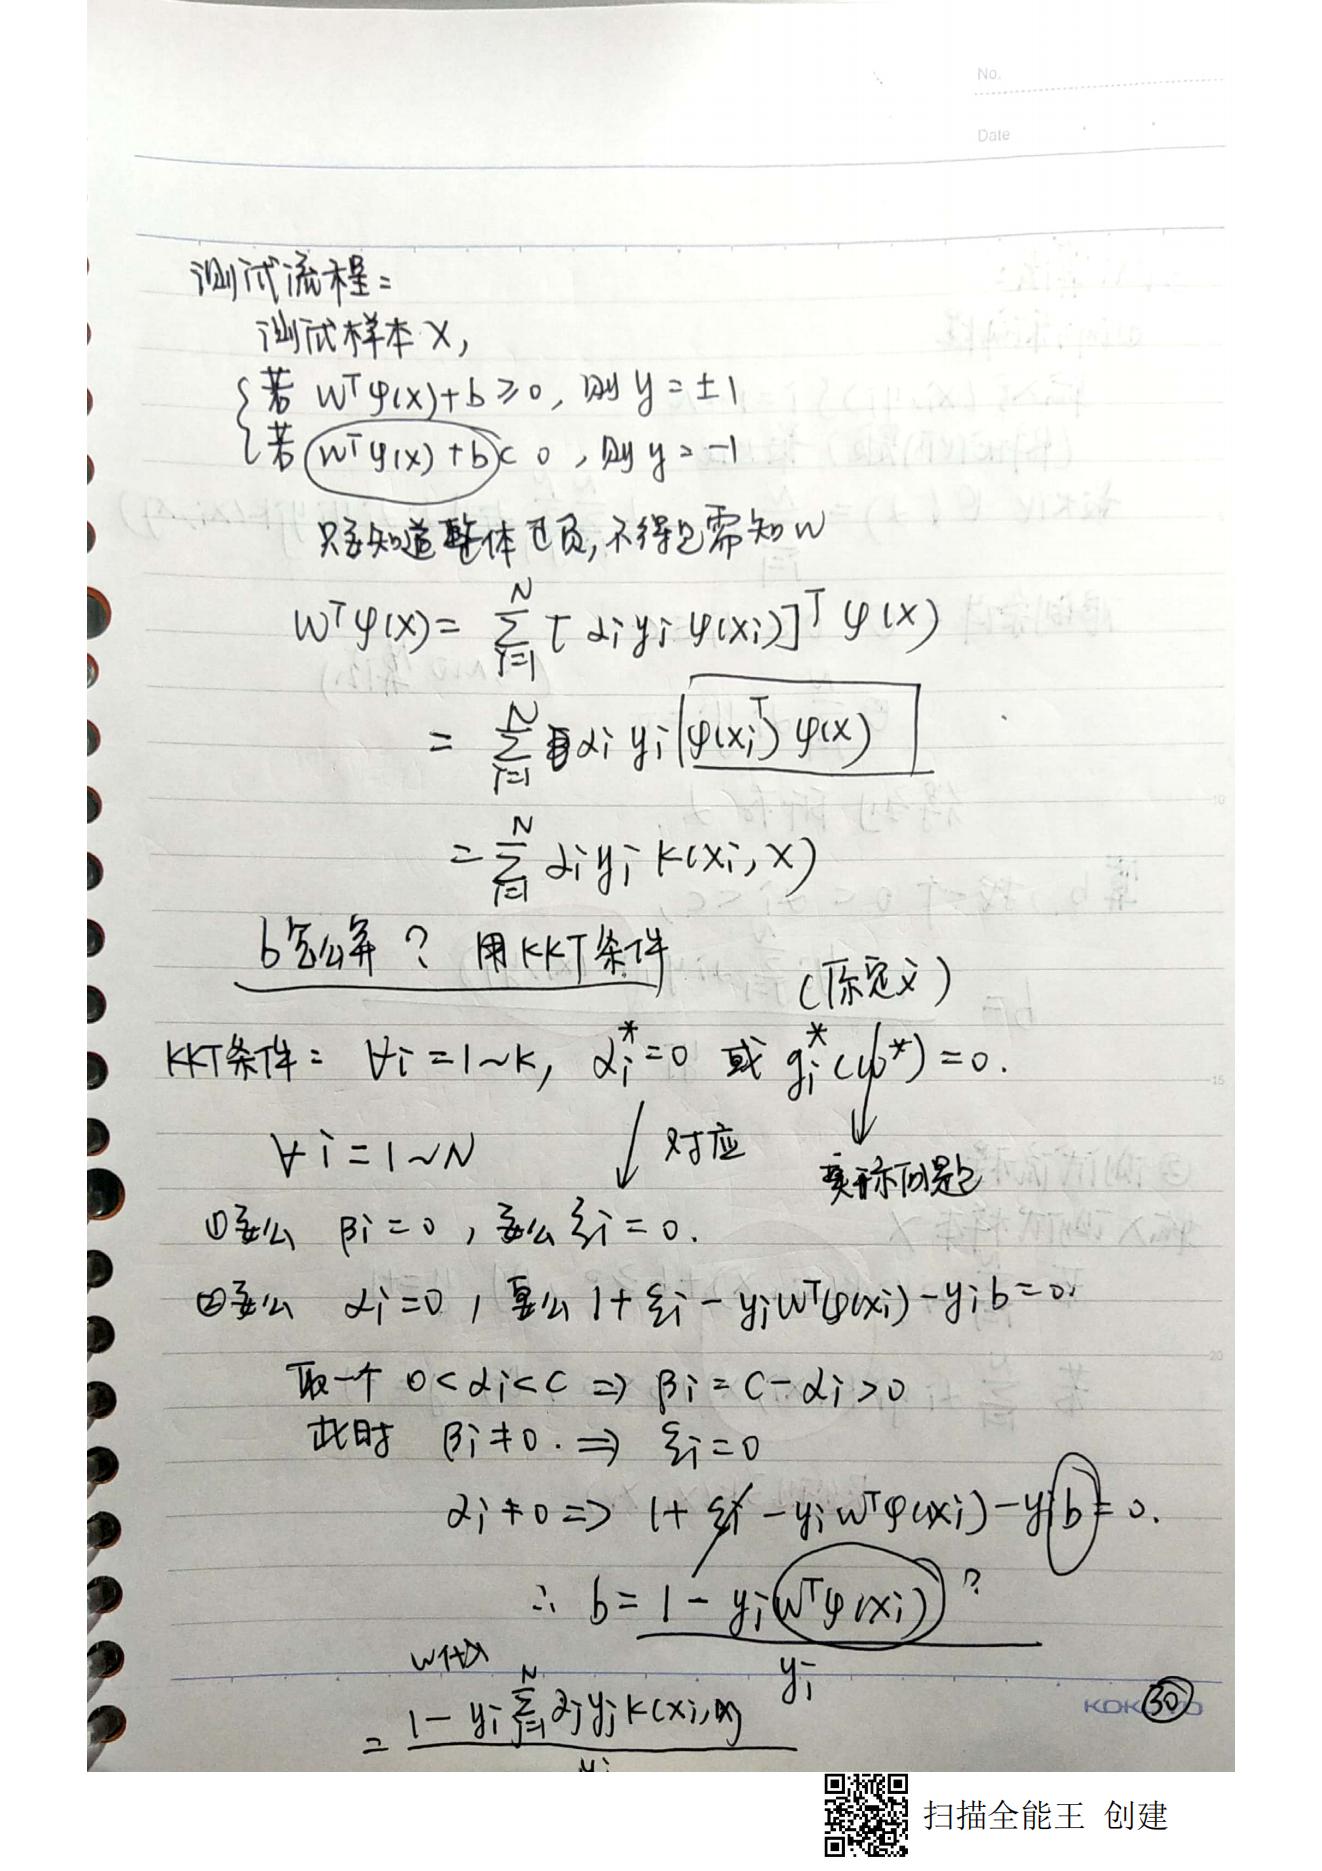 No.
Date
测试流程:
测试样本 X,
若 Wᵀφ(x)+b ≥ 0, 则 y = ±1
若 Wᵀφ(x)+b < 0, 则 y = -1
只要知道整体正负, 不得已需知 W
Wᵀφ(x) = Σ_{i=1}^{N} [αi yi φ(xi)]ᵀ φ(x)
= Σ_{i=1}^{N} αi yi φ(xiᵀ) φ(x)
= Σ_{i=1}^{N} αi yi K(xi, x)
b怎么算? 用KKT条件
(原定义)
KKT条件: ∀i=1~K, αi*=0 或 gi*(w*)=0.
∀i=1~N 对应 实际问题
①要么 βi=0, 要么 ξi=0.
②要么 αi=0, 要么 1+ξi-yiWᵀφ(xi)-yib=0.
取一个 0<αi<C ⇒ βi=C-αi>0
此时 βi≠0. ⇒ ξi=0
αi≠0 ⇒ 1+ξi-yiWᵀφ(xi)-yib=0.
∴ b = (1-yiWᵀφ(xi)) / yi ?
W代入
= (1-yi Σ_{j=1}^{N} αj yj K(xi, xj)) / yi
30
扫描全能王 创建